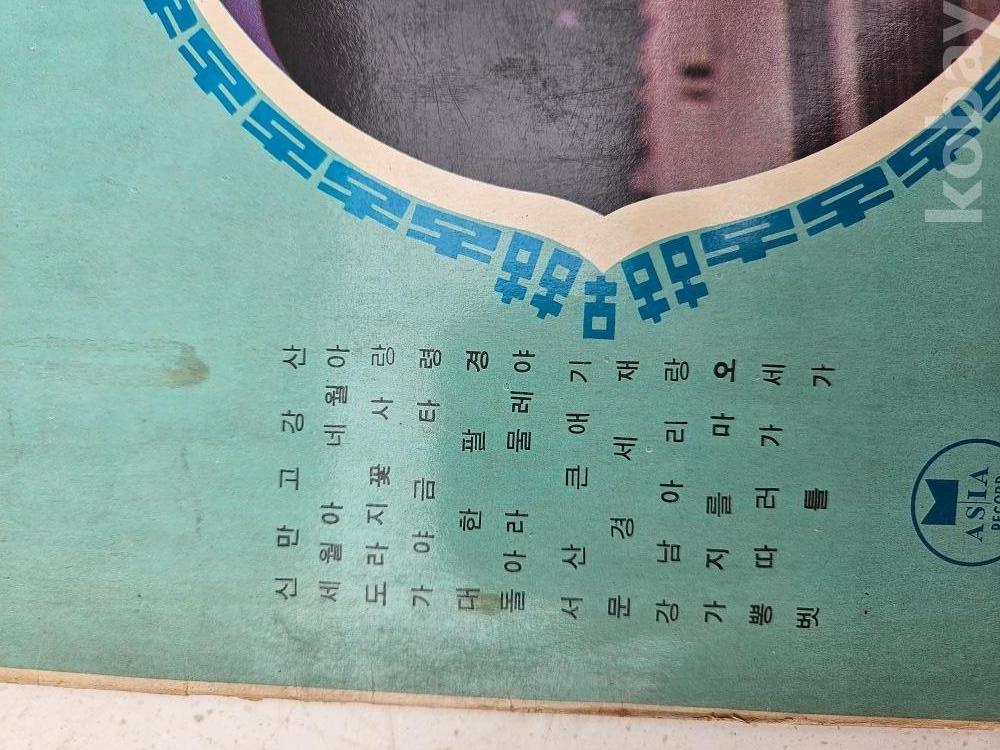 신만고강산
세월아네월아
도라지꽃사랑
가야금타령
대한팔경
돌아라물레야
서산큰애기
문경세재
강남아리랑
가지를마오
뽕따러가세
벳틀가
ASIA
RECORD
kobay